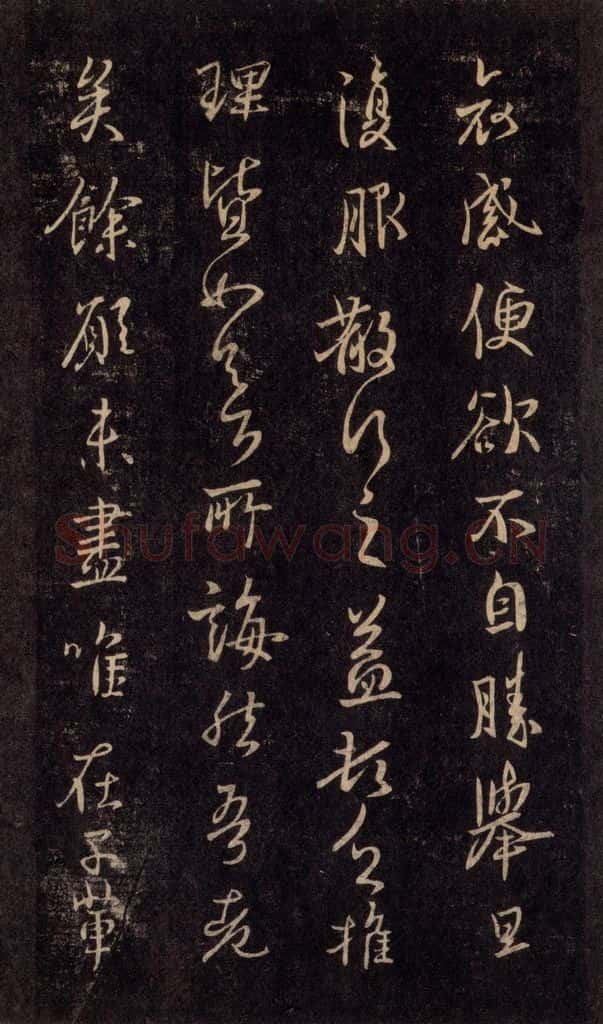 哀感便欲不自勝舉旦
復服散行之益頓乏推
理皆如足下所誨然吾老
矣餘願未盡唯在子輩
Shufawang.CN